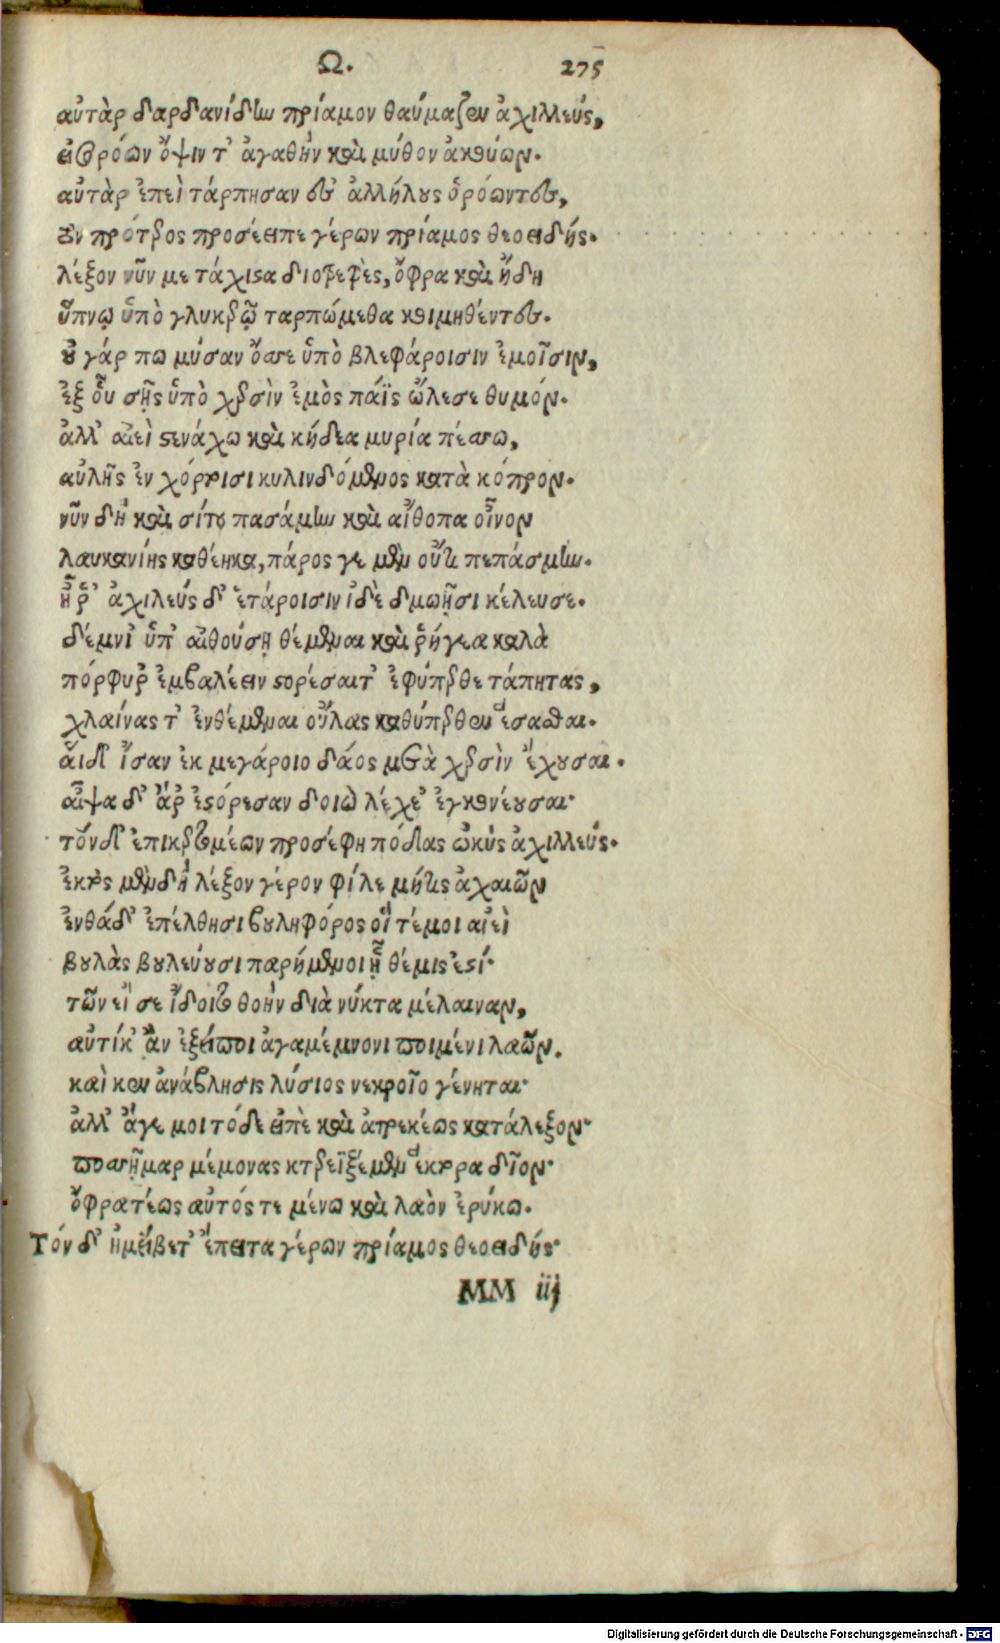 Ω. 275
αὐτὰρ δαρδανίδην πρίαμον θαύμαζεν ἀχιλλεύς,
εἰσορόων ὄψιν τ' ἀγαθὴν καὶ μύθον ἀκούων.
αὐτὰρ ἐπεὶ τάρπησαν ἐς ἀλλήλους ὁρόωντες,
τὸν πρότερος προσέειπε γέρων πρίαμος θεοειδής.
λέξον νῦν με τάχιστα διοτρεφὲς, ὄφρα καὶ ἤδη
ὕπνῳ ὑπὸ γλυκερῷ ταρπώμεθα κοιμηθέντες.
οὐ γάρ πω μύσαν ὄσσε ὑπὸ βλεφάροισιν ἐμοῖσιν,
ἐξ οὗ σῇς ὑπὸ χερσὶν ἐμὸς πάϊς ὤλεσε θυμόν.
ἀλλ' αἰεὶ στενάχω καὶ κήδεα μυρία πέσσω,
αὐλῆς ἐν χόρτοισι κυλινδόμενος κατὰ κόπρον.
νῦν δὴ καὶ σίτου πασάμην καὶ αἴθοπα οἶνον
λαυκανίης καθέηκα, πάρος γε μὲν οὔτι πεπάσμην.
ἦ ῥ' ἀχιλεύς δ' ἑτάροισιν ἰδὲ δμωῇσι κέλευσε.
δέμνι' ὑπ' αἰθούσῃ θέμεναι καὶ ῥήγεα καλὰ
πόρφυρ' ἐμβαλέειν στορέσαι τ' ἐφύπερθε τάπητας,
χλαίνας τ' ἐνθέμεναι οὔλας καθύπερθεν ἕσασθαι.
ἁι δ' ἴσαν ἐκ μεγάροιο δάος μετὰ χερσὶν ἔχουσαι.
αἶψα δ' ἄρ' ἐστόρεσαν δοιὼ λέχε' ἐγκονέουσαι·
τόν δ' ἐπικερτομέων προσέφη πόδας ὠκὺς ἀχιλλεύς.
ἐκτὸς μὲν δὴ λέξον γέρον φίλε μήτις ἀχαιῶν
ἐνθάδ' ἐπέλθησι βουληφόρος οἵ τέ μοι αἰεὶ
βουλὰς βουλεύουσι παρήμενοι ᾗ θέμις ἐστί·
τῶν εἴ σε ἴδοιτο θοὴν διὰ νύκτα μέλαιναν,
αὐτίκ' ἂν ἐξείποι ἀγαμέμνονι ποιμένι λαῶν.
καὶ κεν ἀνάβλησις λύσιος νεκροῖο γένηται·
ἀλλ' ἄγε μοι τόδε εἰπὲ καὶ ἀτρεκέως κατάλεξον·
ποσσῆμαρ μέμονας κτερεϊξέμεν ἕκτορα δῖον·
ὄφρα τέως αὐτός τε μένω καὶ λαὸν ἐρύκω.
Τόν δ' ἠμείβετ' ἔπειτα γέρων πρίαμος θεοειδής·
MM iij
Digitalisierung gefördert durch die Deutsche Forschungsgemeinschaft - DFG